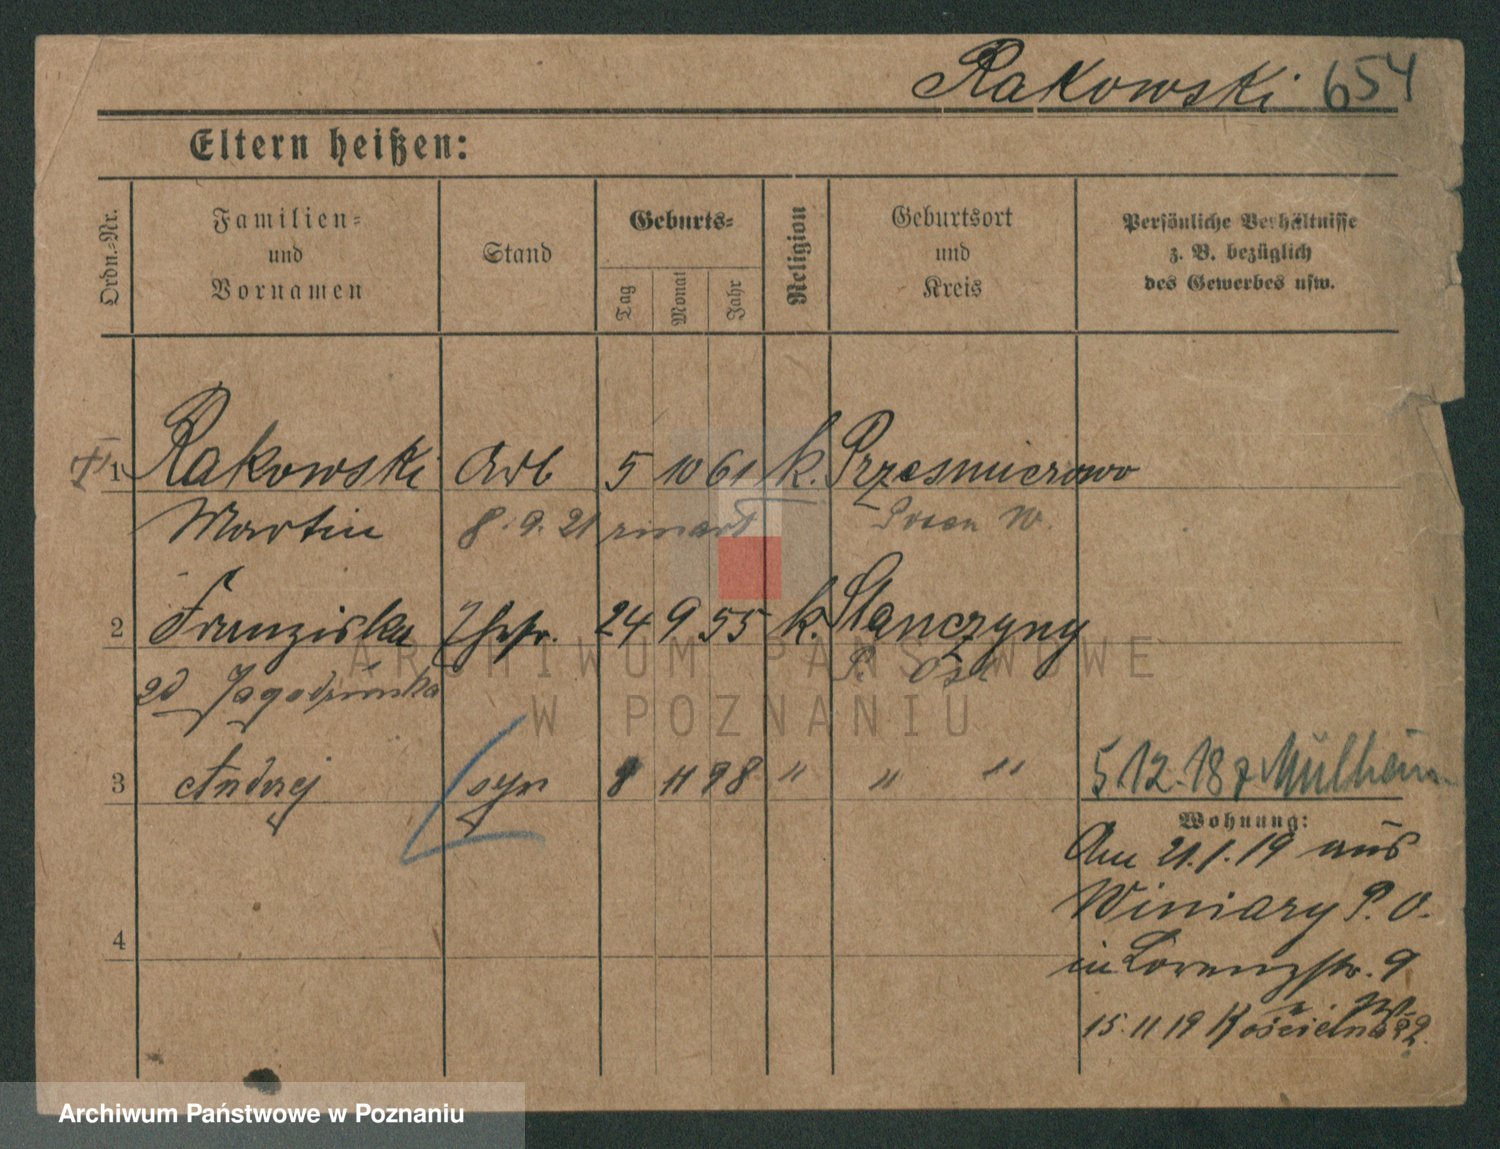 Rakowski 654
Eltern heißen:
Ordn.-Nr.
Familien- und Vornamen
Stand
Geburts-
Tag
Monat
Jahr
Religion
Geburtsort und Kreis
Persönliche Verhältnisse z. B. bezüglich des Gewerbes usw.
1 Rakowski Arb 5 10 61 k. Przesmierowo
Martin 8.9.21 zmarł Posen W.
2 Franziska Ehefr. 24 9 55 k. Stanczyny
zd Jagodzińska P. Ost
3 Andrzej syn 8 11 98 " " " 5.12.18 z Mülheim
Wohnung:
Am 21.1.19 aus
Winiary P. O.
in Lorenzstr. 9
15.11.19 Kościelna 22.
4
ARCHIWUM PAŃSTWOWE
W POZNANIU
Archiwum Państwowe w Poznaniu